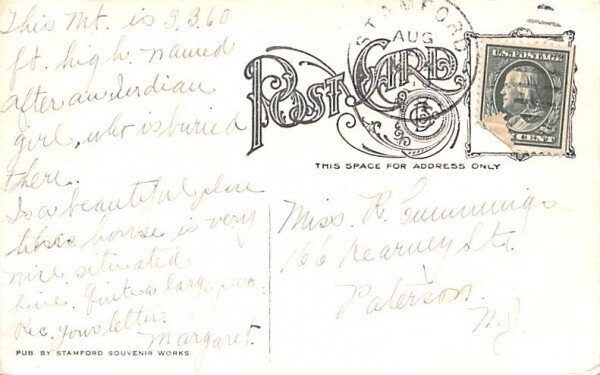 This Mt. is 3,360
ft. high. named
after an Indian
girl, who is buried
there.
Is a beautiful place
house is very
nice, situated
fine. Quite a large
Rec. your letter.
Margaret.
PUB. BY STAMFORD SOUVENIR WORKS.
POST CARD
THIS SPACE FOR ADDRESS ONLY
STAMFORD
AUG
U.S. POSTAGE
CENT
Miss R. Cummings
166 Kearney St.
Paterson
N.J.